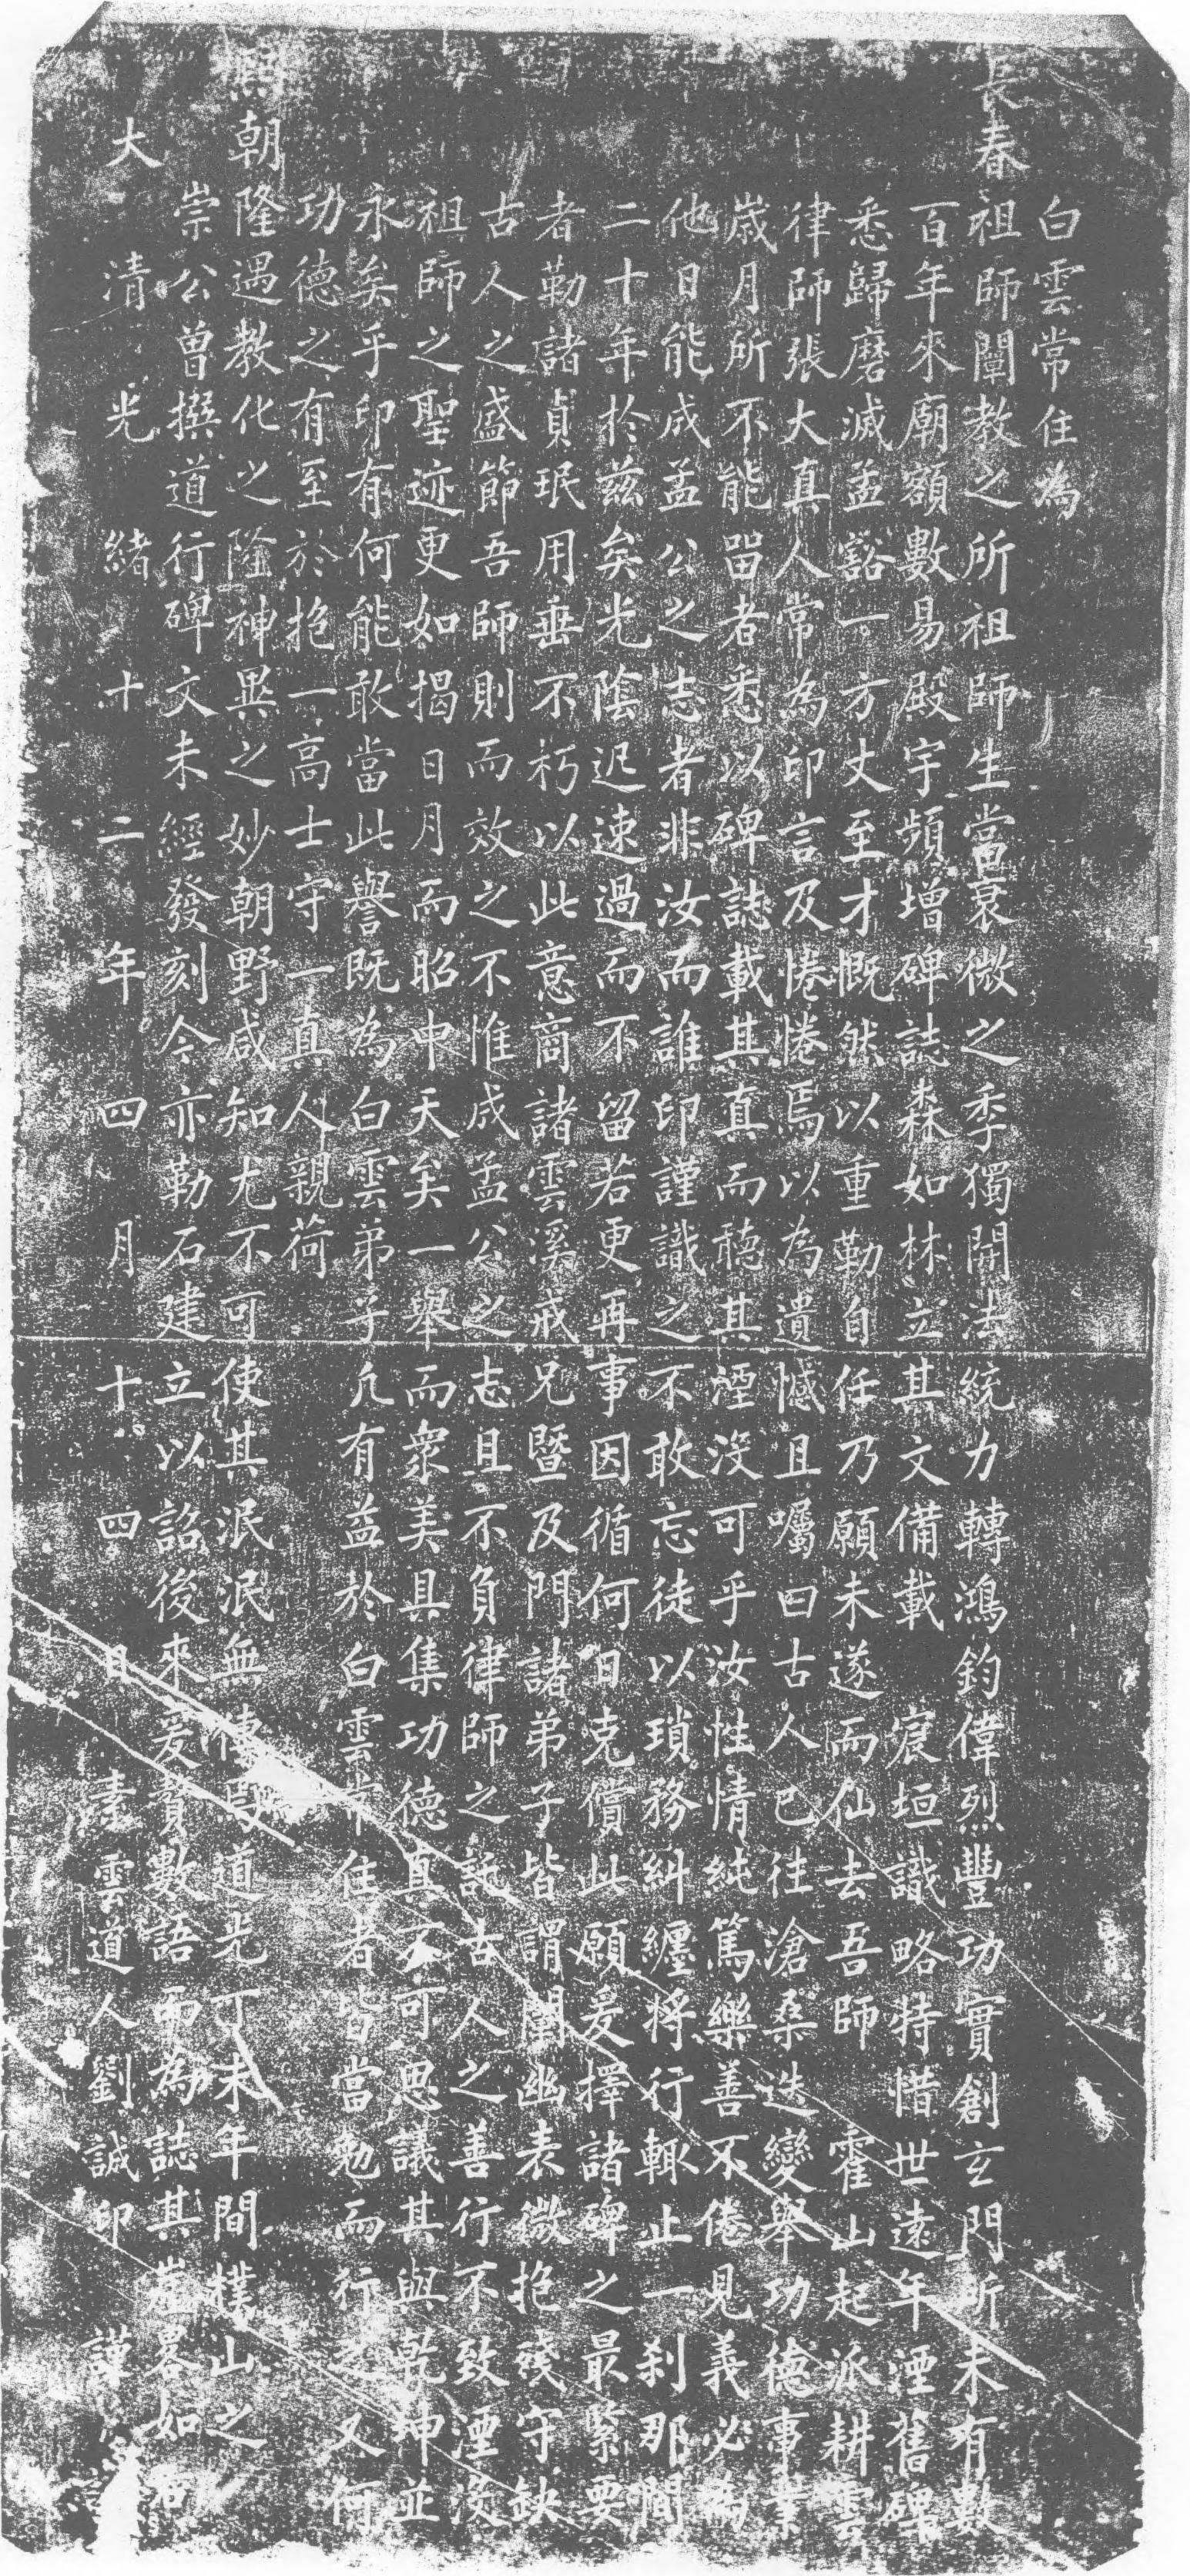 白雲常住為
長春祖師闡教之所祖師生當衰微之季獨開法統力轉鴻鈞偉烈豐功實創玄門所未有數
百年來廟額數易殿宇頻增碑誌森如林立其文備載宸垣識略特惜世遠年湮舊碑
悉歸磨滅孟豁一方丈至才慨然以重勒自任乃願未遂而仙去吾師霍山起派耕雲
律師張大真人常為印言及惓惓焉以為遺憾且囑曰古人已往滄桑迭變舉功德事業
歲月所不能畱者悉以碑誌載其真而聽其湮沒可乎汝性情純篤樂善不倦見義必為
他日能成孟公之志者非汝而誰印謹識之不敢忘徒以瑣務糾纏將行輒止一刹那間
二十年於茲矣光陰迅速過而不留若更再事因循何日克償此願爰擇諸碑之最緊要
者勒諸貞珉用垂不朽以此意商諸雲溪戒兄暨及門諸弟子皆謂闡幽表微抱殘守缺
古人之盛節吾師則而效之不惟成孟公之志且不負律師之託古人之善行不致湮沒
祖師之聖迹更如揭日月而昭中天矣一舉而衆美具集功德真不可思議其與乾坤並
永矣乎印有何能敢當此譽既為白雲弟子凢有益於白雲常住者皆當勉而行之又何
功德之有至於抱一高士守一真人親荷
熙朝隆遇教化之隆神異之妙朝野咸知尤不可使其泯泯無傳 道光丁未年間樸山之
崇公曾撰道行碑文未經發刻今亦勒石建立以詔後來爰贅數語而為誌其崖畧如右
大清光緒十二年四月十四日素雲道人劉誠印謹